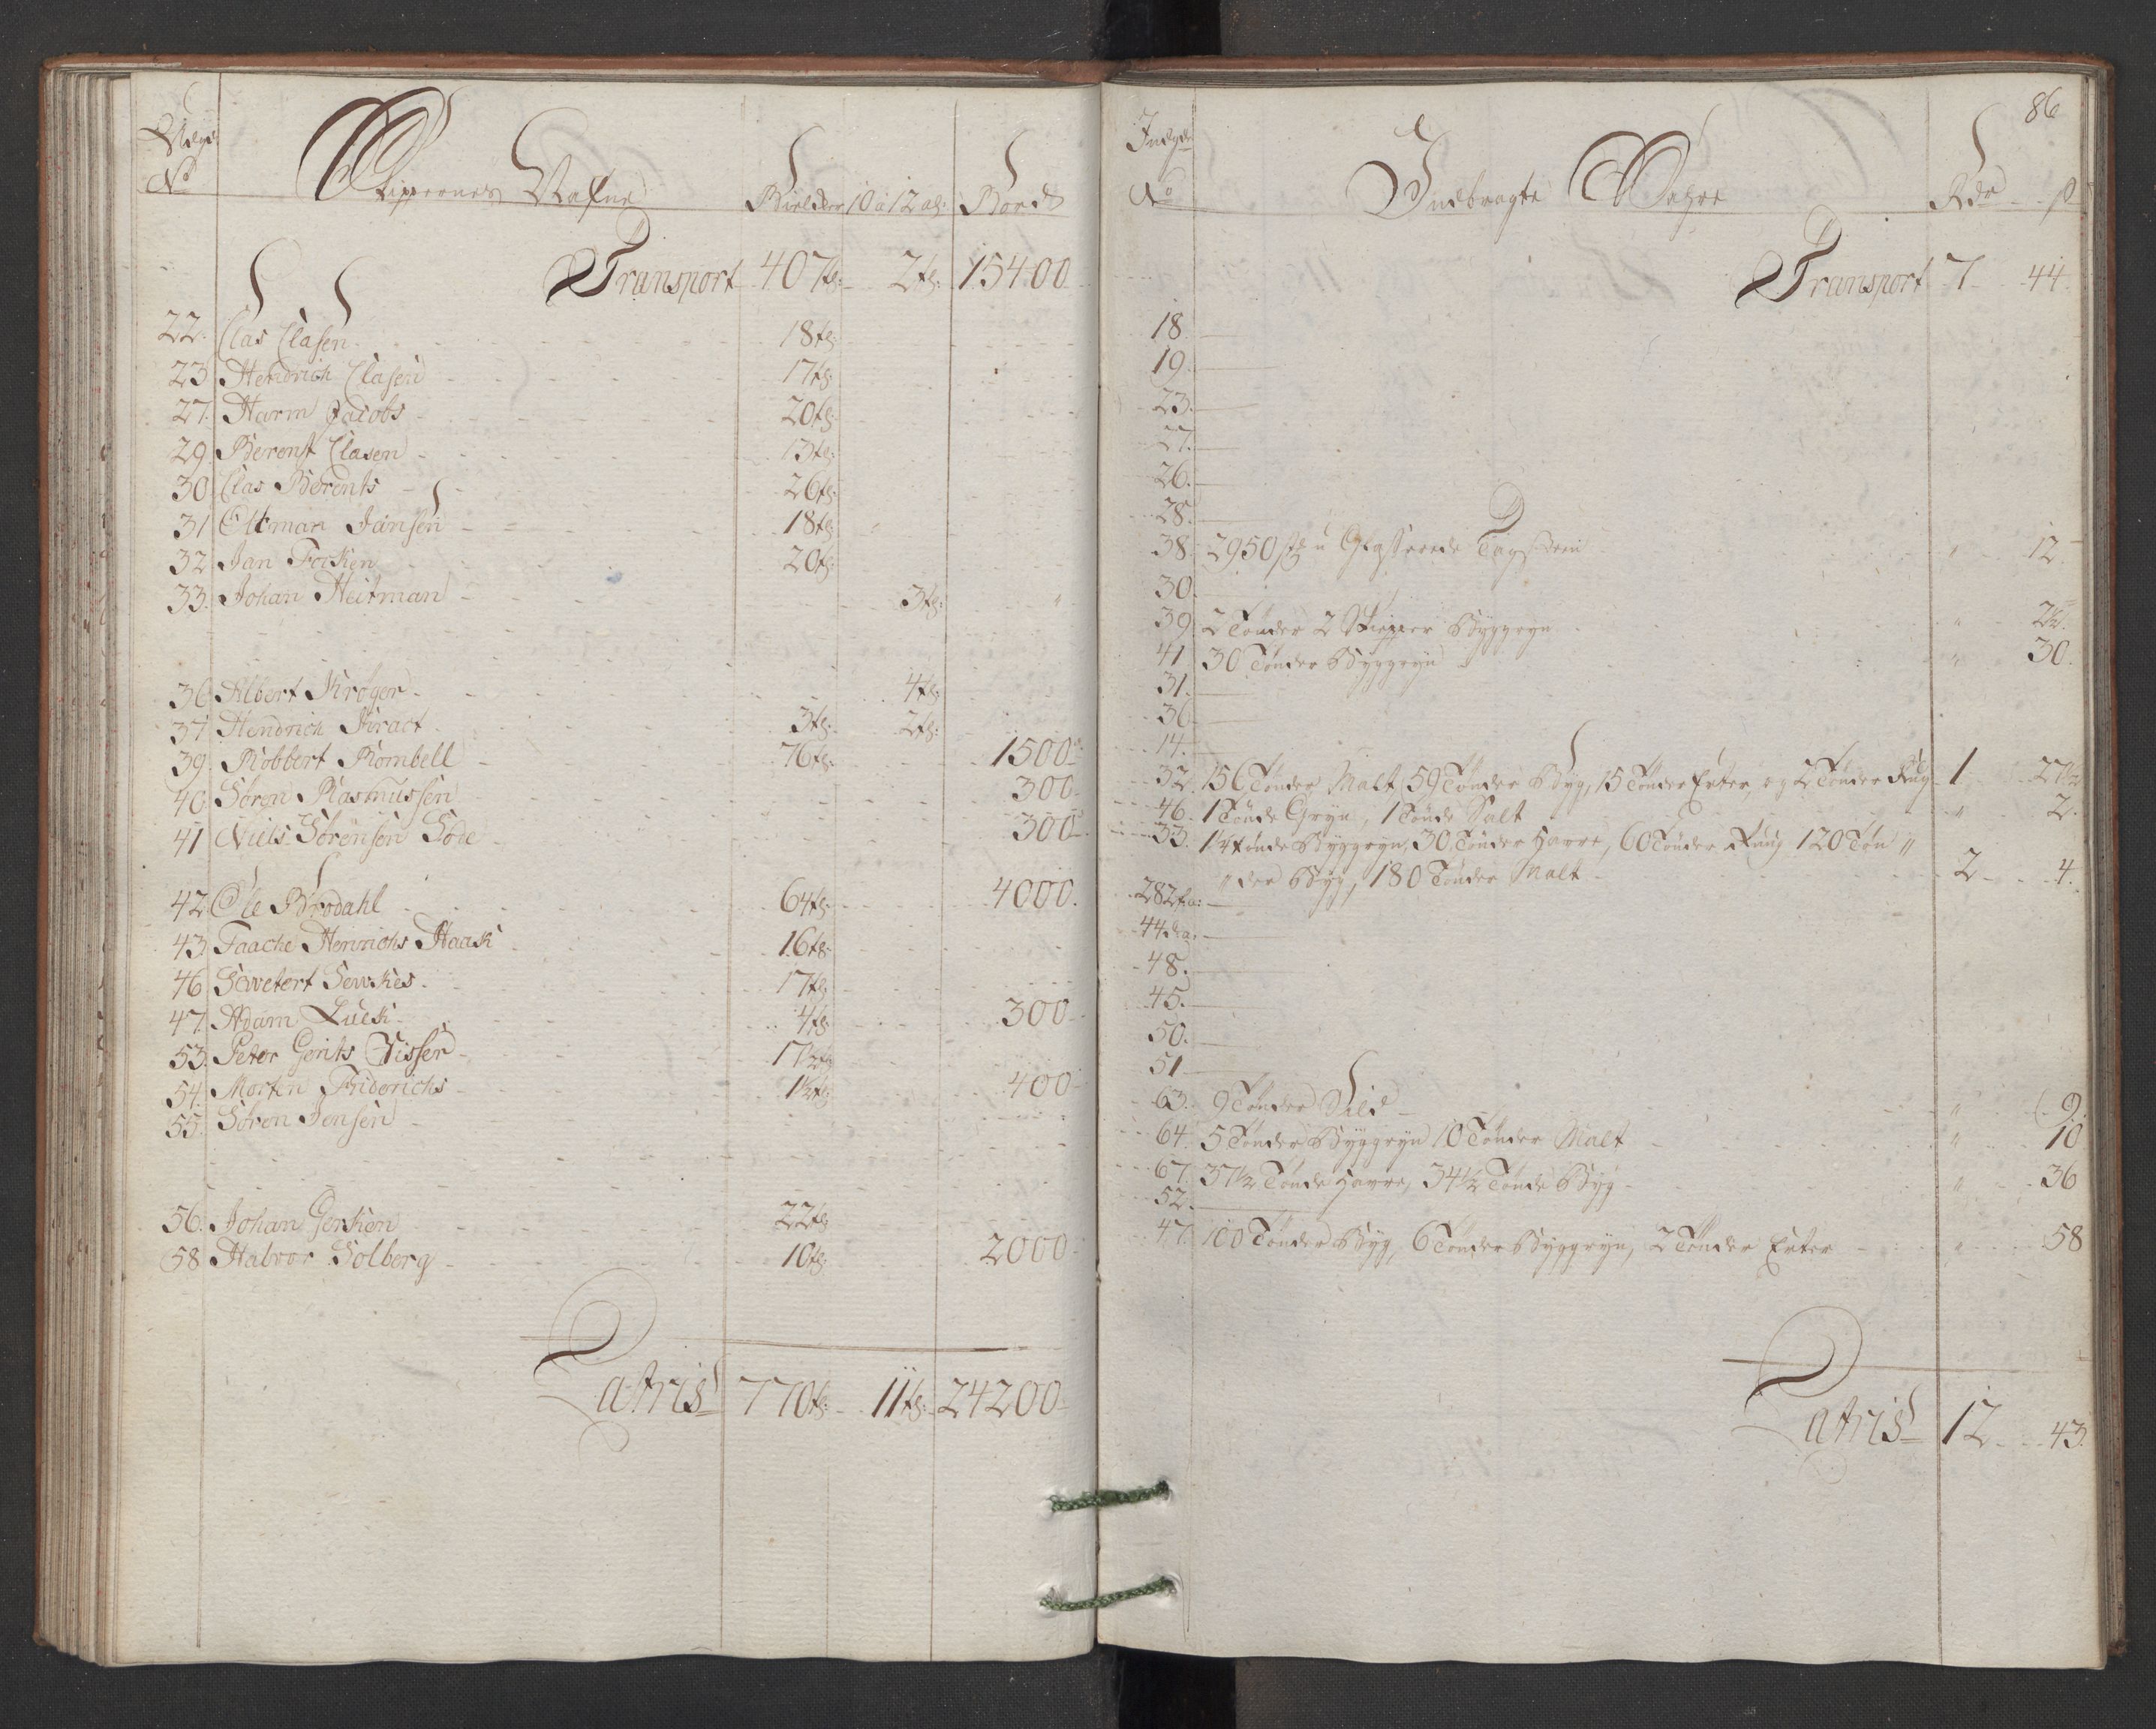 Udgd. Skippernes Nafne Bielcker 10 a 12 al: Bord
No
Transport 407 tl: 2 tl: 15400
22. Clas Clasen 18 tl:
23 Hendrich Clasen 17 tl:
27. Harm Jacobs 20 tl:
29 Berent Clasen 13 tl:
30 Clas Berents 26 tl:
31 Oltman Jansen 18 tl: "
32 Jan Focken 20 tl:
33. Johan Heitman 3 tl: "
36 Albert Krøger 4 tl:
37 Hendrich Kract 3 tl: 2 tl:
39. Robbert Rombell 76 tl: 1500
40 Søren Rasmussen 300
41 Niels Sørensen 300
42 Ole Brodahl 64 tl: 4000.
43. Taache Henrichs Haak 16 tl:
46 Sewetert Sewkes 17 tl:
47. Adam Luck 4 tl: 300
53. Peter Gerits Visser 17½ tl:
54. Morten Friderichs 1½ tl: 400
55. Søren Jensen
56. Johan Gerken 22 tl:
58 Halvor Solberg 10 tl: 2000
Latris 770 tl: 11 tl: 24200
86
Indgd. Indbragte Vahre Rdr ß
No
Transport 7 44
18
19.
23.
27.
26.
28.
38. 2950 st. u Glasserede Tagsteen " 12
30.
39. 2 Tønder 2 Skiepper Byggryn " 2½.
41 30 Tønder Byggryn " 30.
31.
36
14.
32. 156 Tønder Malt, 59 Tønder Byg, 15 Tønder Erter, og 2 Tønder Rug 1 27½
46. 1 Tønde Gryn, 1 Tønde Salt " 2.
33. 1¼ Tønde Byggryn, 30 Tønder Havre, 60 Tønder Rug 120 Tøn "
" der Byg, 180 Tønder Malt 2 4.
282
44
48.
45.
50.
51
63. 9 Tønder Sild " 9.
64. 5 Tønder Byggryn 10 Tønder Malt " 10
67. 37½ Tønde Havre, 34½ Tønde Byg " 36
52.
47. 100 Tønder Byg, 6 Tønder Byggryn, 2 Tønder Erter " 58
Latris 12 43.